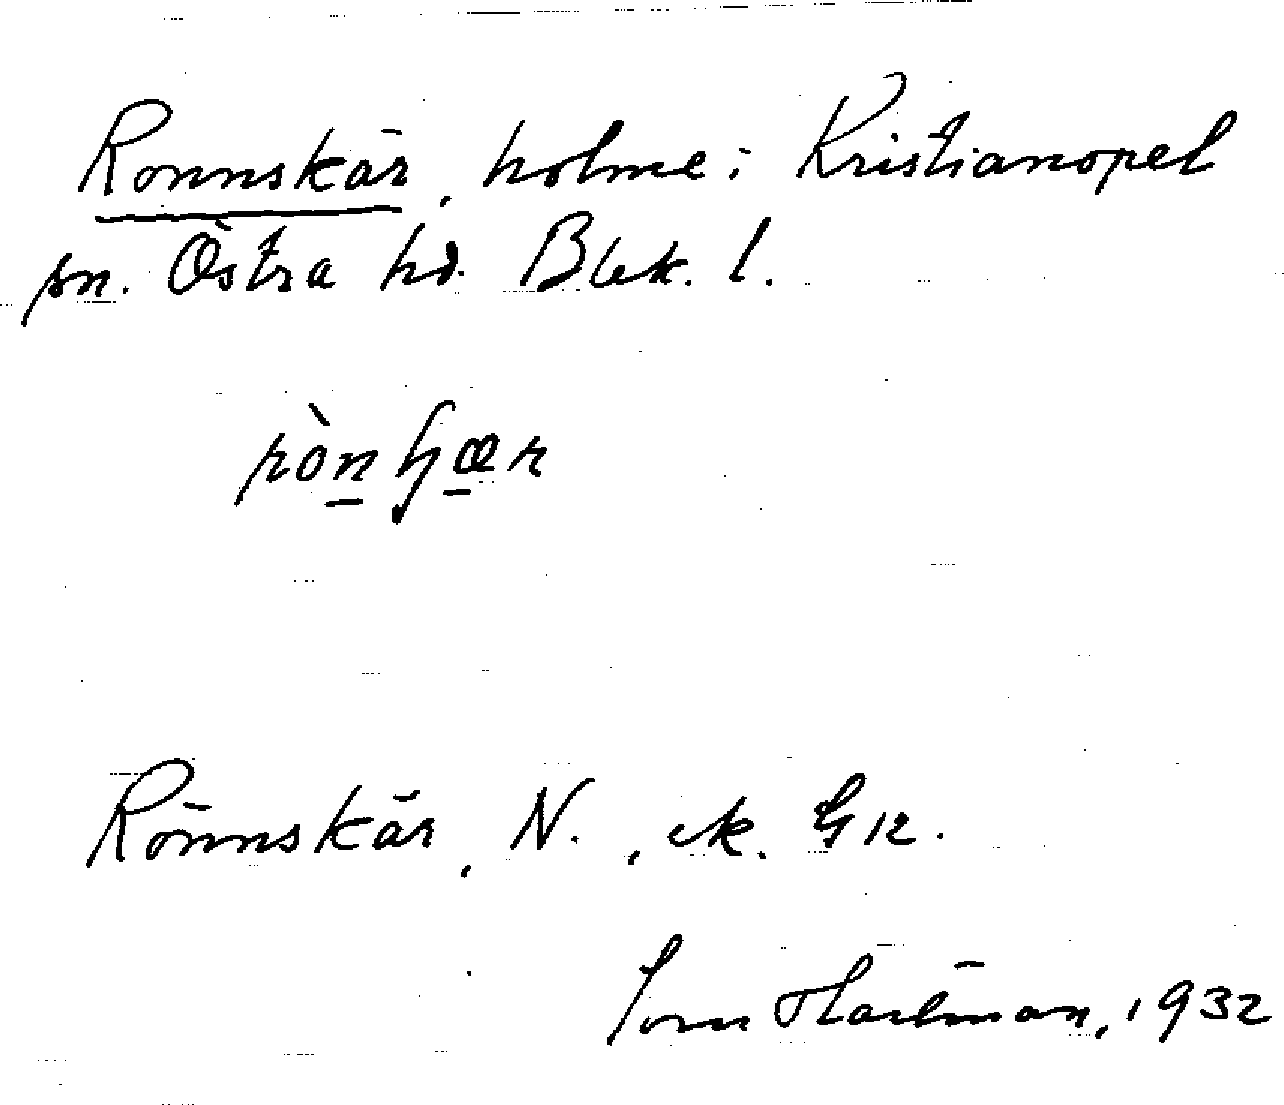 Ronnskär, holme i Kristianopel
sn. Östra hd. Blek. l.
Rönnskär, N., ek.
Hartman, 1932